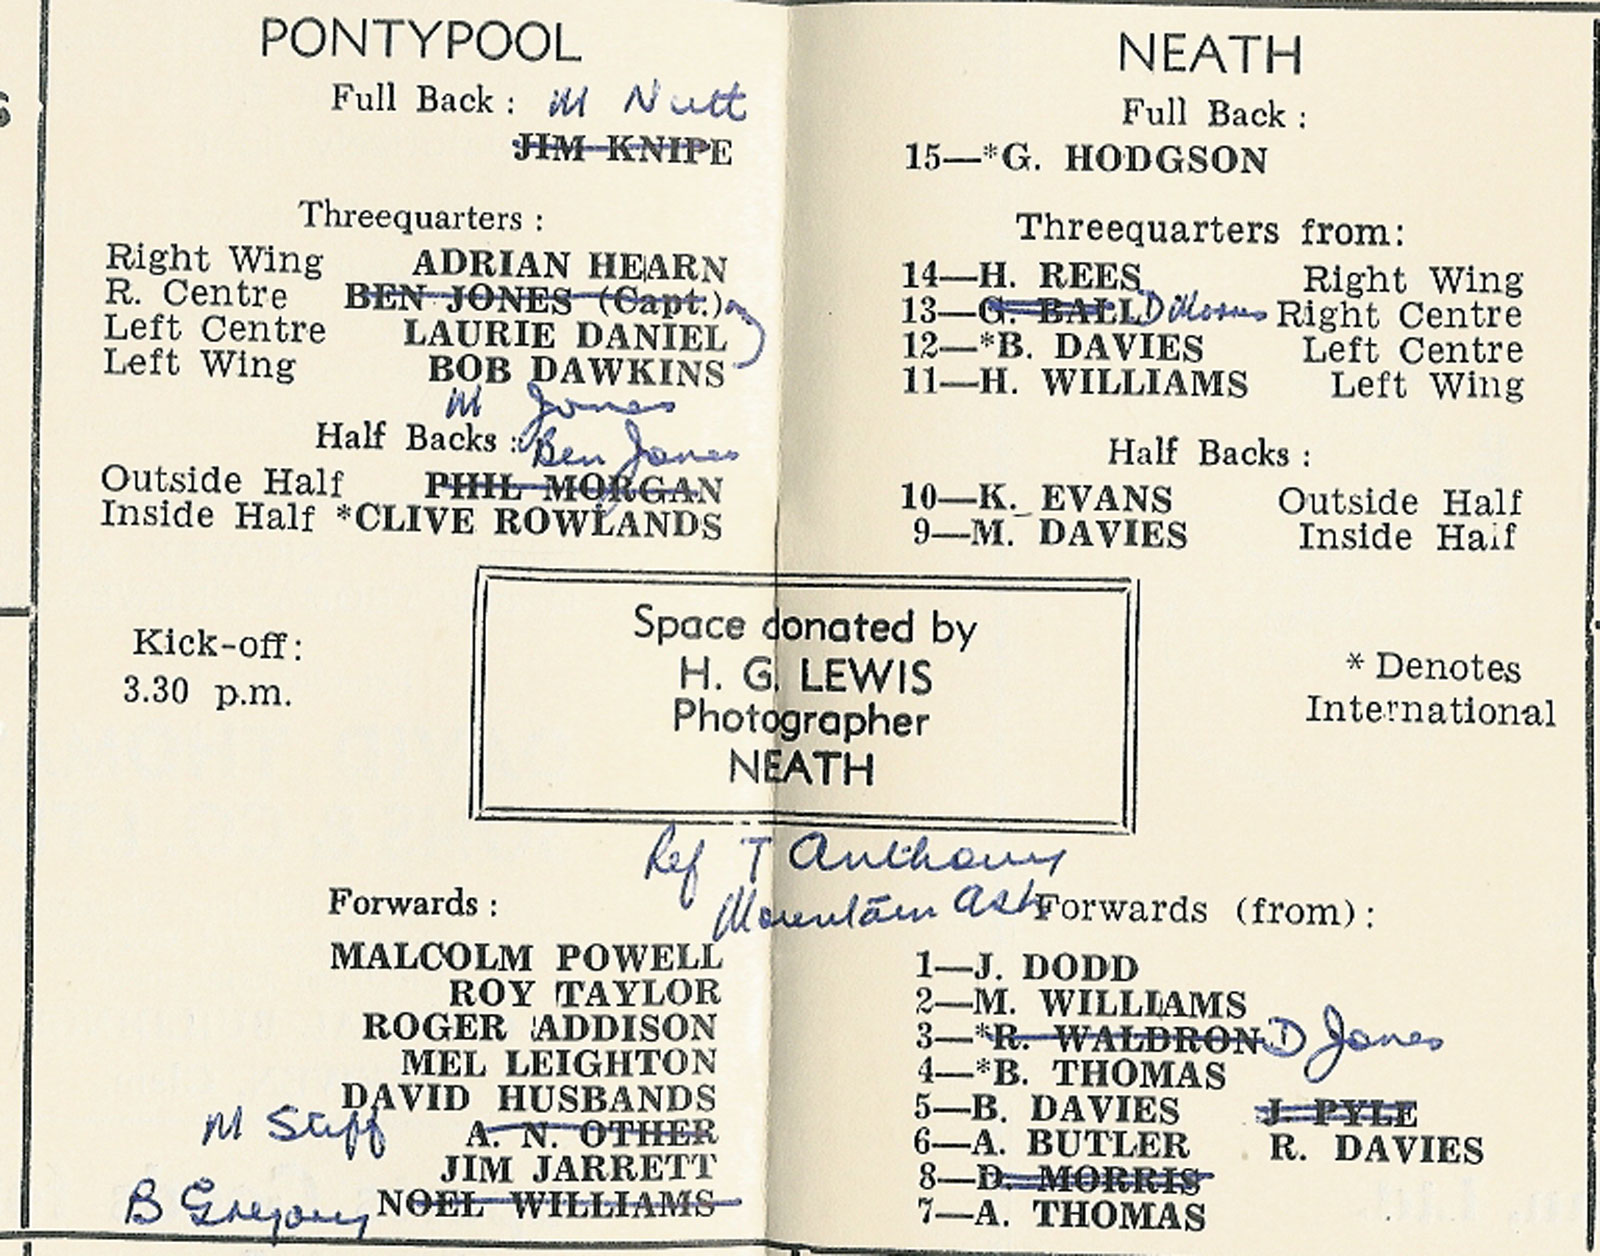 PONTYPOOL
Full Back : M Nutt
JIM KNIPE
Threequarters :
Right Wing ADRIAN HEARN
R. Centre BEN JONES (Capt.)
Left Centre LAURIE DANIEL
Left Wing BOB DAWKINS
M Jones
Half Backs : Ben Jones
Outside Half PHIL MORGAN
Inside Half *CLIVE ROWLANDS
Kick-off:
3.30 p.m.
NEATH
Full Back :
15—*G. HODGSON
Threequarters from:
14—H. REES Right Wing
13—G. BALL D Morris Right Centre
12—*B. DAVIES Left Centre
11—H. WILLIAMS Left Wing
Half Backs :
10—K. EVANS Outside Half
9—M. DAVIES Inside Half
* Denotes
International
Space donated by
H. G. LEWIS
Photographer
NEATH
Ref T Anthony
Mountain Ash
Forwards :
MALCOLM POWELL
ROY TAYLOR
ROGER ADDISON
MEL LEIGHTON
DAVID HUSBANDS
M Stiff A. N. OTHER
JIM JARRETT
B Gregory NOEL WILLIAMS
Forwards (from) :
1—J. DODD
2—M. WILLIAMS
3—*R. WALDRON D Jones
4—*B. THOMAS
5—B. DAVIES J. PYLE
6—A. BUTLER R. DAVIES
8—D. MORRIS
7—A. THOMAS